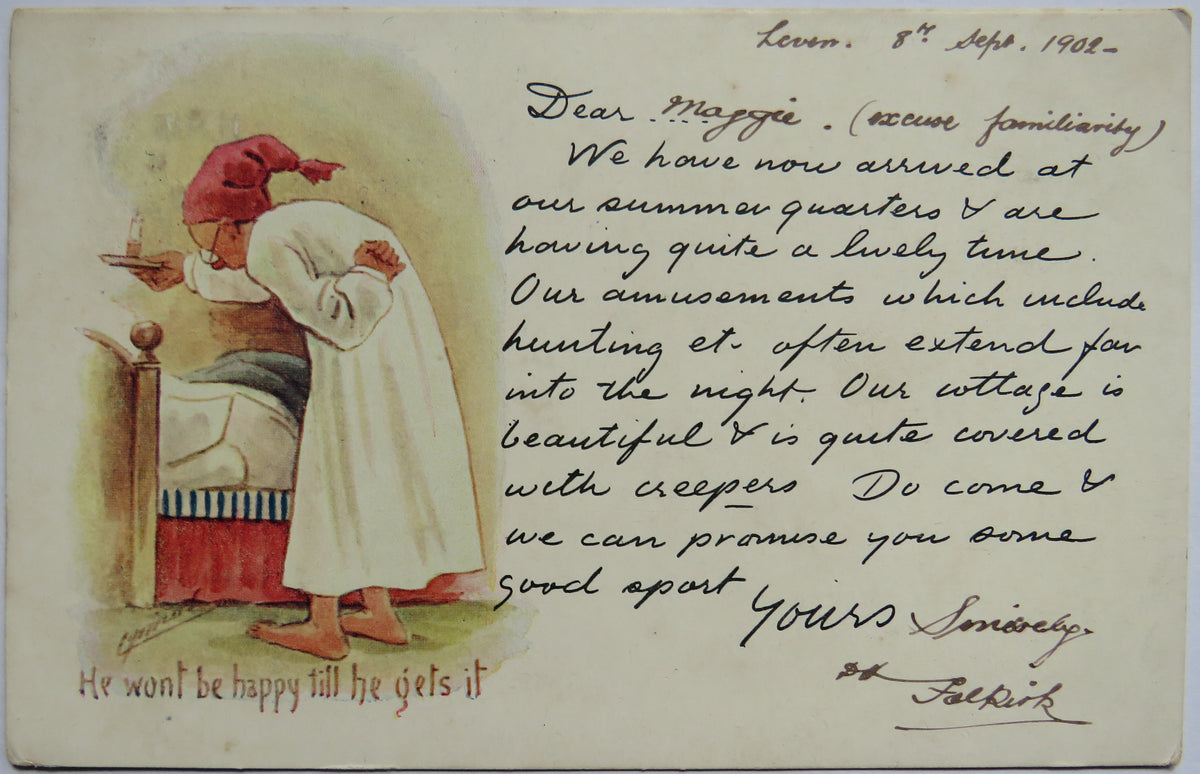 Leven. 8th Sept. 1902-
Dear Maggie. (excuse familiarity)
We have now arrived at
our summer quarters & are
having quite a lively time.
Our amusements which include
hunting et. often extend far
into the night. Our cottage is
beautiful & is quite covered
with creepers Do come &
we can promise you some
good sport
Yours Sincerely.
Falkirk
He wont be happy till he gets it